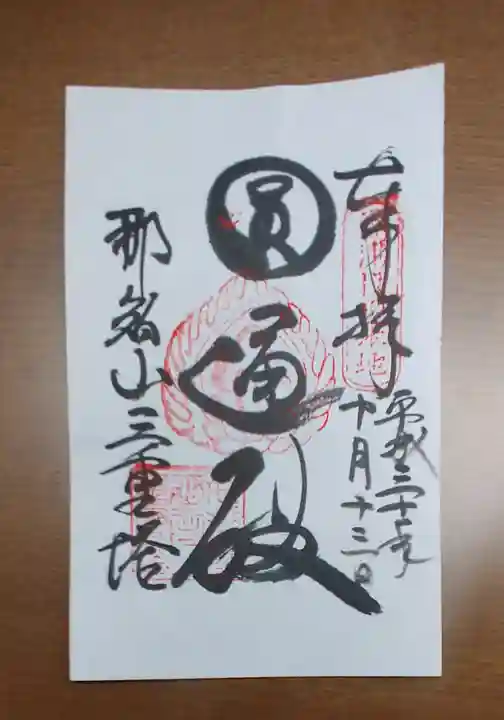 奉拝
平成二十年
十月十三日
圓通殿
那智山三重塔